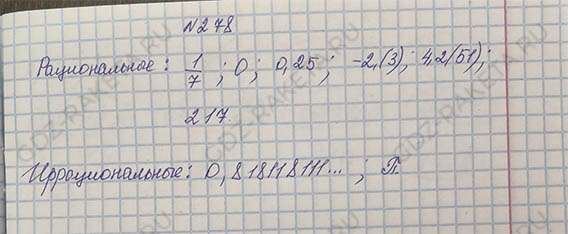 N278
Рациональные: 1/7; 0; 0,25; -2,(3); 4,2(51);
217
Иррациональные: 0,818118111...; П
GDZ-RAKETA.RU